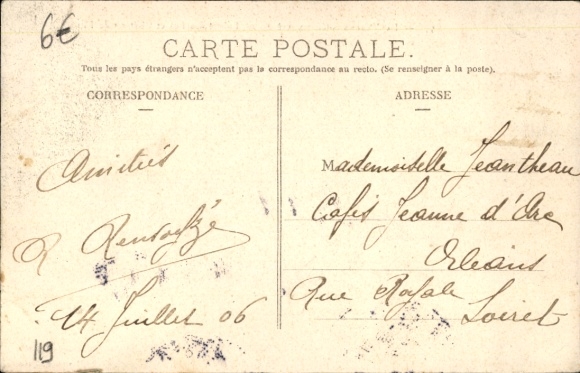 6€
CARTE POSTALE.
Tous les pays étrangers n'acceptent pas la correspondance au recto. (Se renseigner à la poste).
CORRESPONDANCE
Amitiés
R
14 Juillet 06
119
ADRESSE
Mademoiselle Jeantheau
Cafés Jeanne d'Arc
Orléans
Rue Royale
Loiret